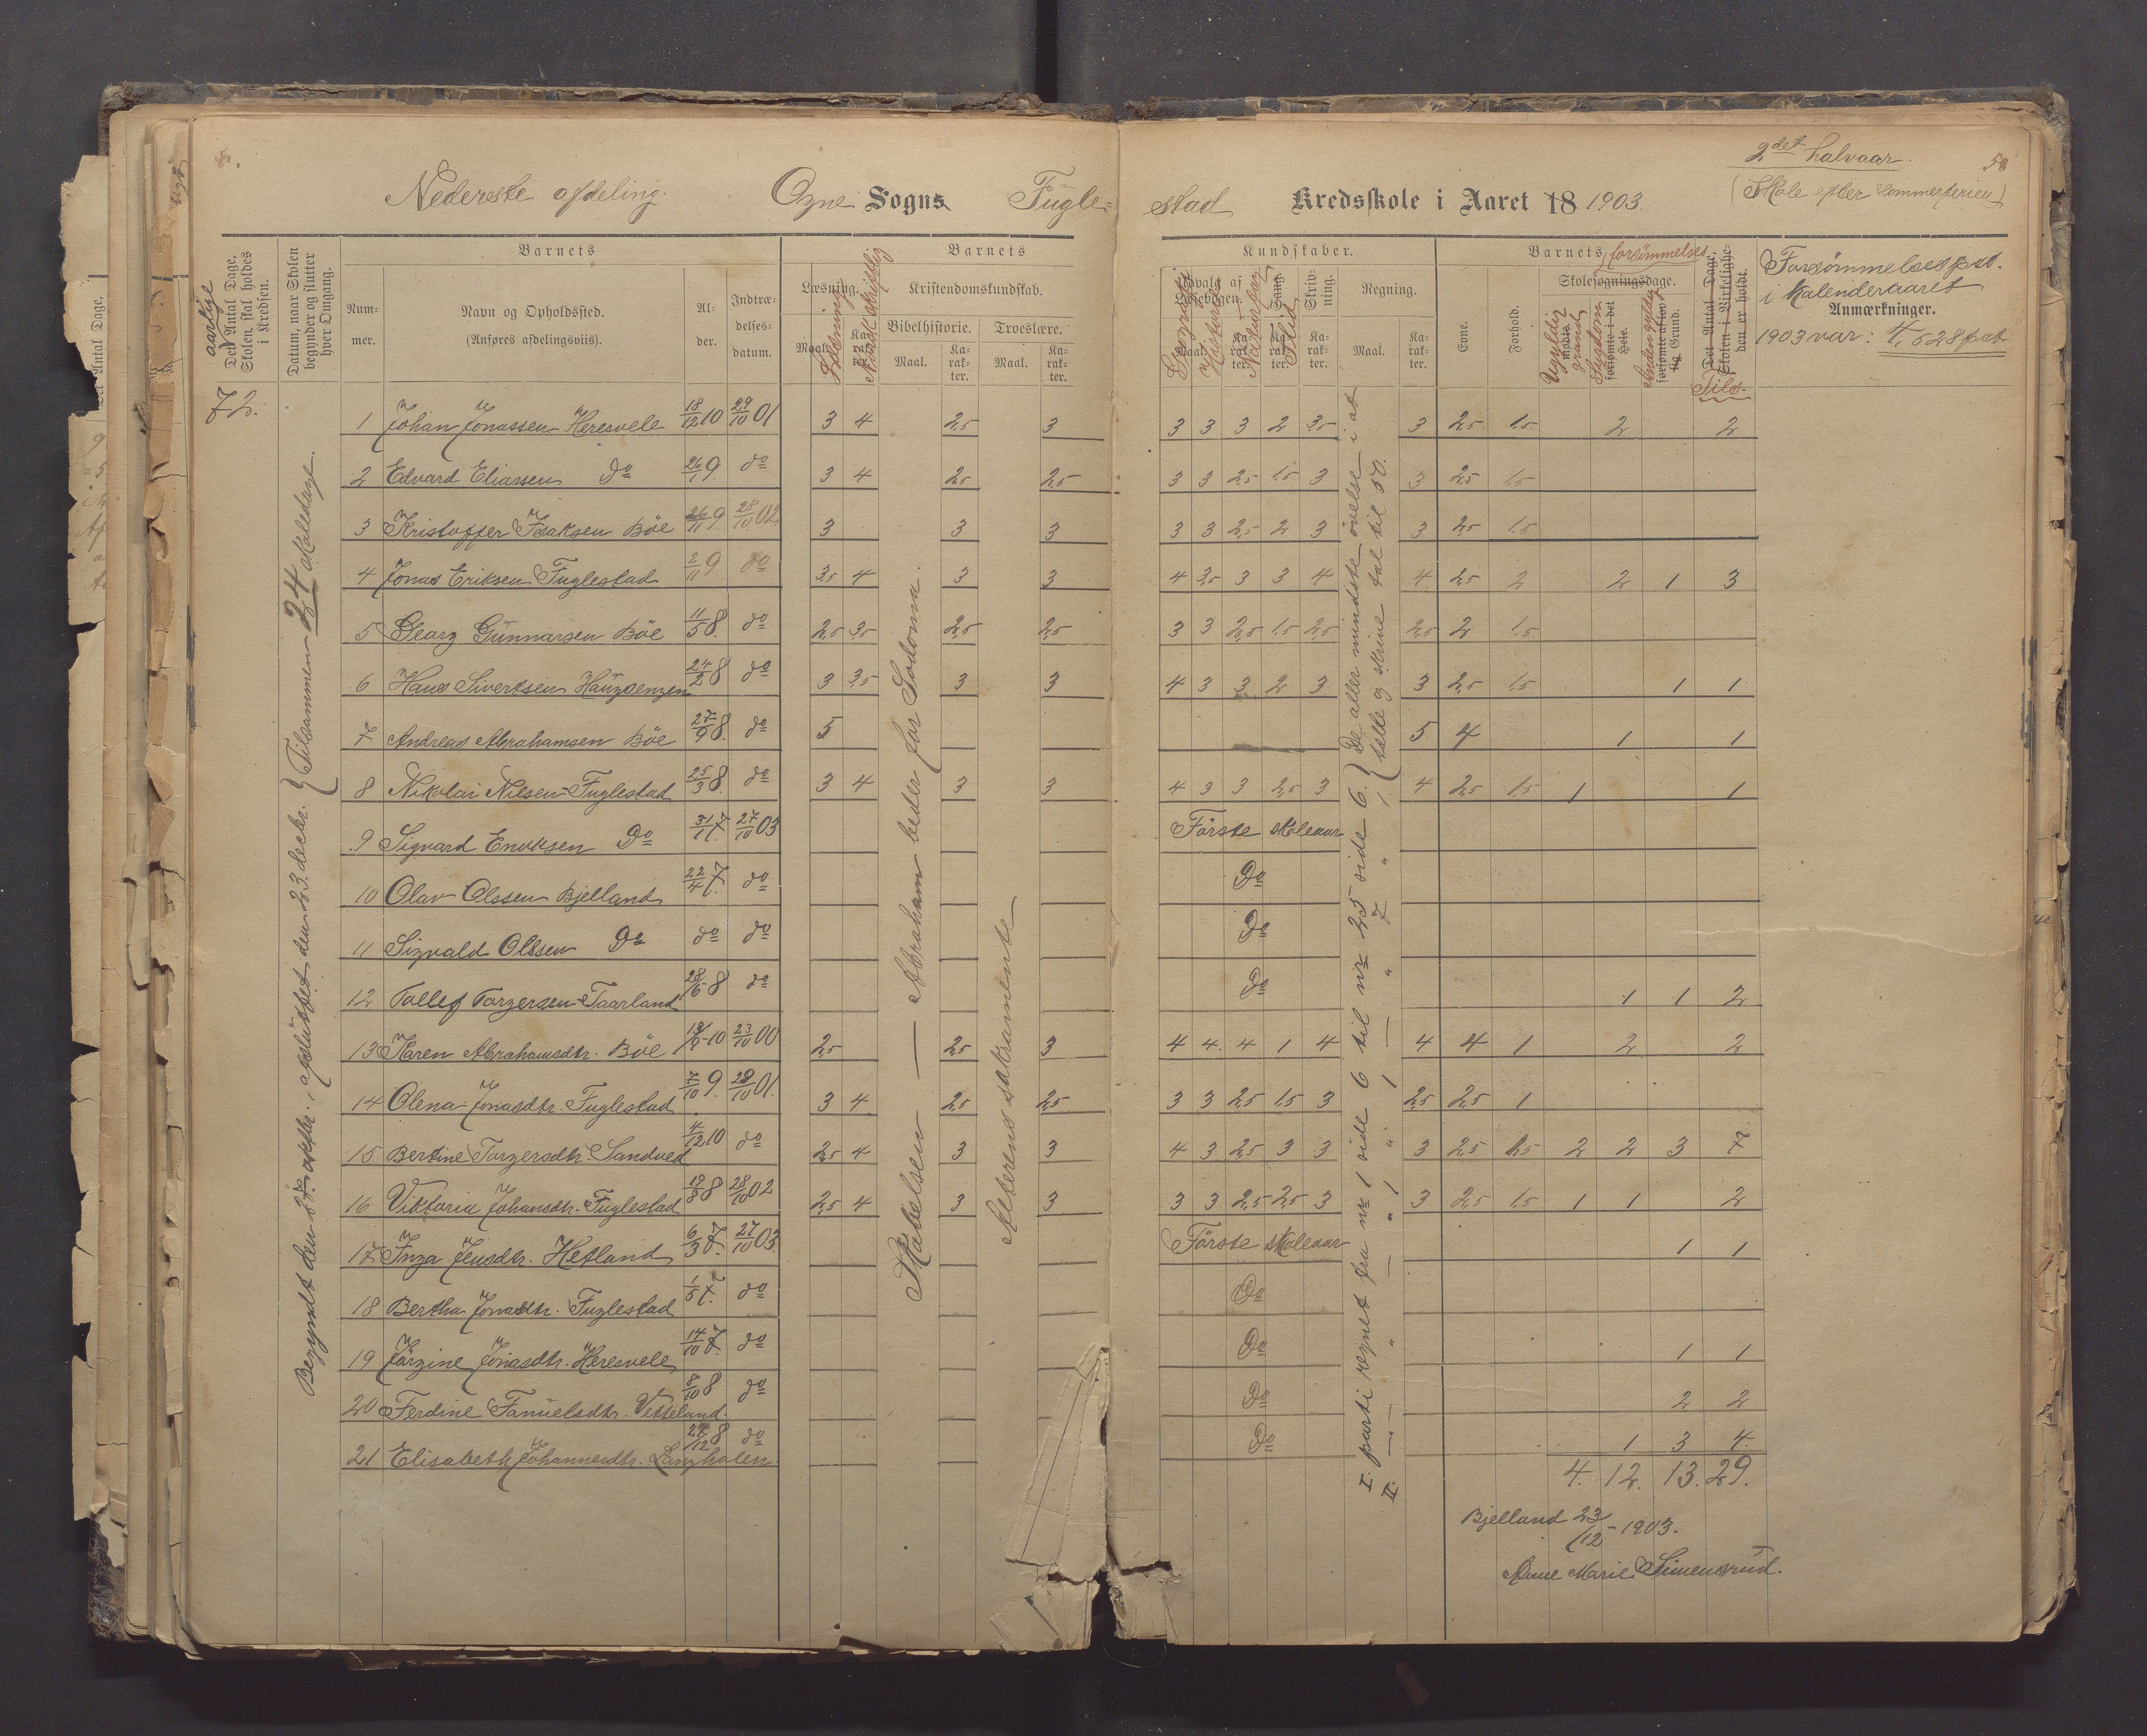 2det halvaar.
58
Nederste afdeling. Ogne Sogns Fugle=
stad Kredsskole i Aaret 18 1903.
(Skole efter sommerferien)
aarlige
Det Antal Dage, Skolen skal holdes i Kredsen.
Datum, naar Skolen begynder og slutter hver Omgang.
Barnets
Num-mer.
Navn og Opholdssted.
(Anføres afdelingsviis).
Al-der.
Indtræ-delses-datum.
Barnets
Læsning.
Maal.
Læsning
Ka-rak-ter.
Norsk skriftlig
Kristendomskundskab.
Bibelhistorie.
Troeslære.
Maal.
Ka-rak-ter.
Maal.
Ka-rak-ter.
Kundskaber.
Udvalg af Læsebogen.
Maal.
Geografi
Historie
Ka-rak-ter.
Sang.
Flid
Ka-rak-ter.
Skriv-ning.
Ka-rak-ter.
Regning.
Maal.
Ka-rak-ter.
Barnets forsømmelser
Evne.
Forhold.
Skolesøgningsdage.
Ugyldig grund
forsømte i det Hele.
Sygdom
Anden gyldig
forsømte af lovlig Grund.
Det Antal Dage, Skolen i Virkelighe-den er holdt.
Tils.
Forsømmelsespct.
i kalenderaaret
Anmærkninger.
1903 var: 4,528 pct.
72.
Begyndt den 27. oktbr., afsluttet den 23. decbr. } Tilsammen 24 skoledage.
1 Johan Jonassen Heresvele 18/12 10 29/10 01 3 4 2,5 3 3 3 3 2 3,5 3 2,5 1,5 2 2
2 Edvard Eliassen Do 26/1 9 do 3 4 2,5 2,5 3 3 2,5 1,5 3 3 2,5 1,5
3 Kristoffer Isaksen Böe 26/11 9 28/10 02 3 3 3 3 3 2,5 2 3 3 2,5 1,5
4 Jonas Eriksen Fuglestad 2/11 9 do 3,5 4 3 3 4 3,5 3 3 4 4 2,5 2 2 1 3
5 Georg Gunnarsen Böe 11/5 8. do 2,5 3,5 2,5 2,5 3 3 2,5 1,5 2,5 2,5 2 1,5
6 Hans Sivertsen Haugsengen 24/2 8 do 3 3,5 3 3 4 3 3 2 3 3 2,5 1,5 1 1
7 Andreas Abrahamsen Böe 27/9 8. do 5 5 4 1 1
8 Nikolai Nilsen Fuglestad 25/3 8. do 3 4 3 3 4 3 3 2,5 3 4 2,5 1,5 1 1
9 Sigvard Eriksen Do 31/1 7. 27/10 03 Förste skoleaar
10 Olav Olssen Bjelland 22/4 7. do Do
11 Sigvald Olssen Do do do Do
12 Tollef Torgersen Taarland 28/6 8 do Do 1 1 2
13 Karen Abrahamsdtr. Böe 10 23/10 00 2,5 2,5 3 4 4 4 1 4 4 4 1 2 2
14 Olena Jonasdtr. Fuglestad 9. 28/10 01. 3 4 2,5 2,5 3 3 2,5 1,5 3 2,5 2,5 1
15 Bertine Torgersdtr. Sandved 4/12 10 do 2,5 4 3 3 4 3 2,5 3 3 3 2,5 1,5 2 2 3 7
16 Viktoria Johansdtr. Fuglestad 8 28/10 02 2,5 4 3 3 3 3 2,5 2,5 3 3 2,5 1,5 1 1 2
17 Inga Jensdtr. Hetland 6/3 7. 27/10 03. Förste skoleaar 1 1
18 Bertha Jonasdtr. Fuglestad 1/5 7. do Do
19 Jörgine Jonasdtr. Heresvele 14/10 7. do Do 1 1
20 Ferdine Fanuelsdtr. Vetteland. 8/10 8 do Do 2 2
21 Elisabeth Johannesdtr. Langholen 8 do Do 1 3 4.
4. 12. 13. 29.
Skabelsen — Abraham beder for Sodoma.
Alterens sakramente
I. parti regnet fra nr 1 side 6 til nr 25 side 6. } De aller mindste övelse i at
II. — " — " 1 " 1 — " 7 " 1 } telle og skrive tal til 50.
Bjelland 23/12 - 1903.
Anne Marie Simensrud.